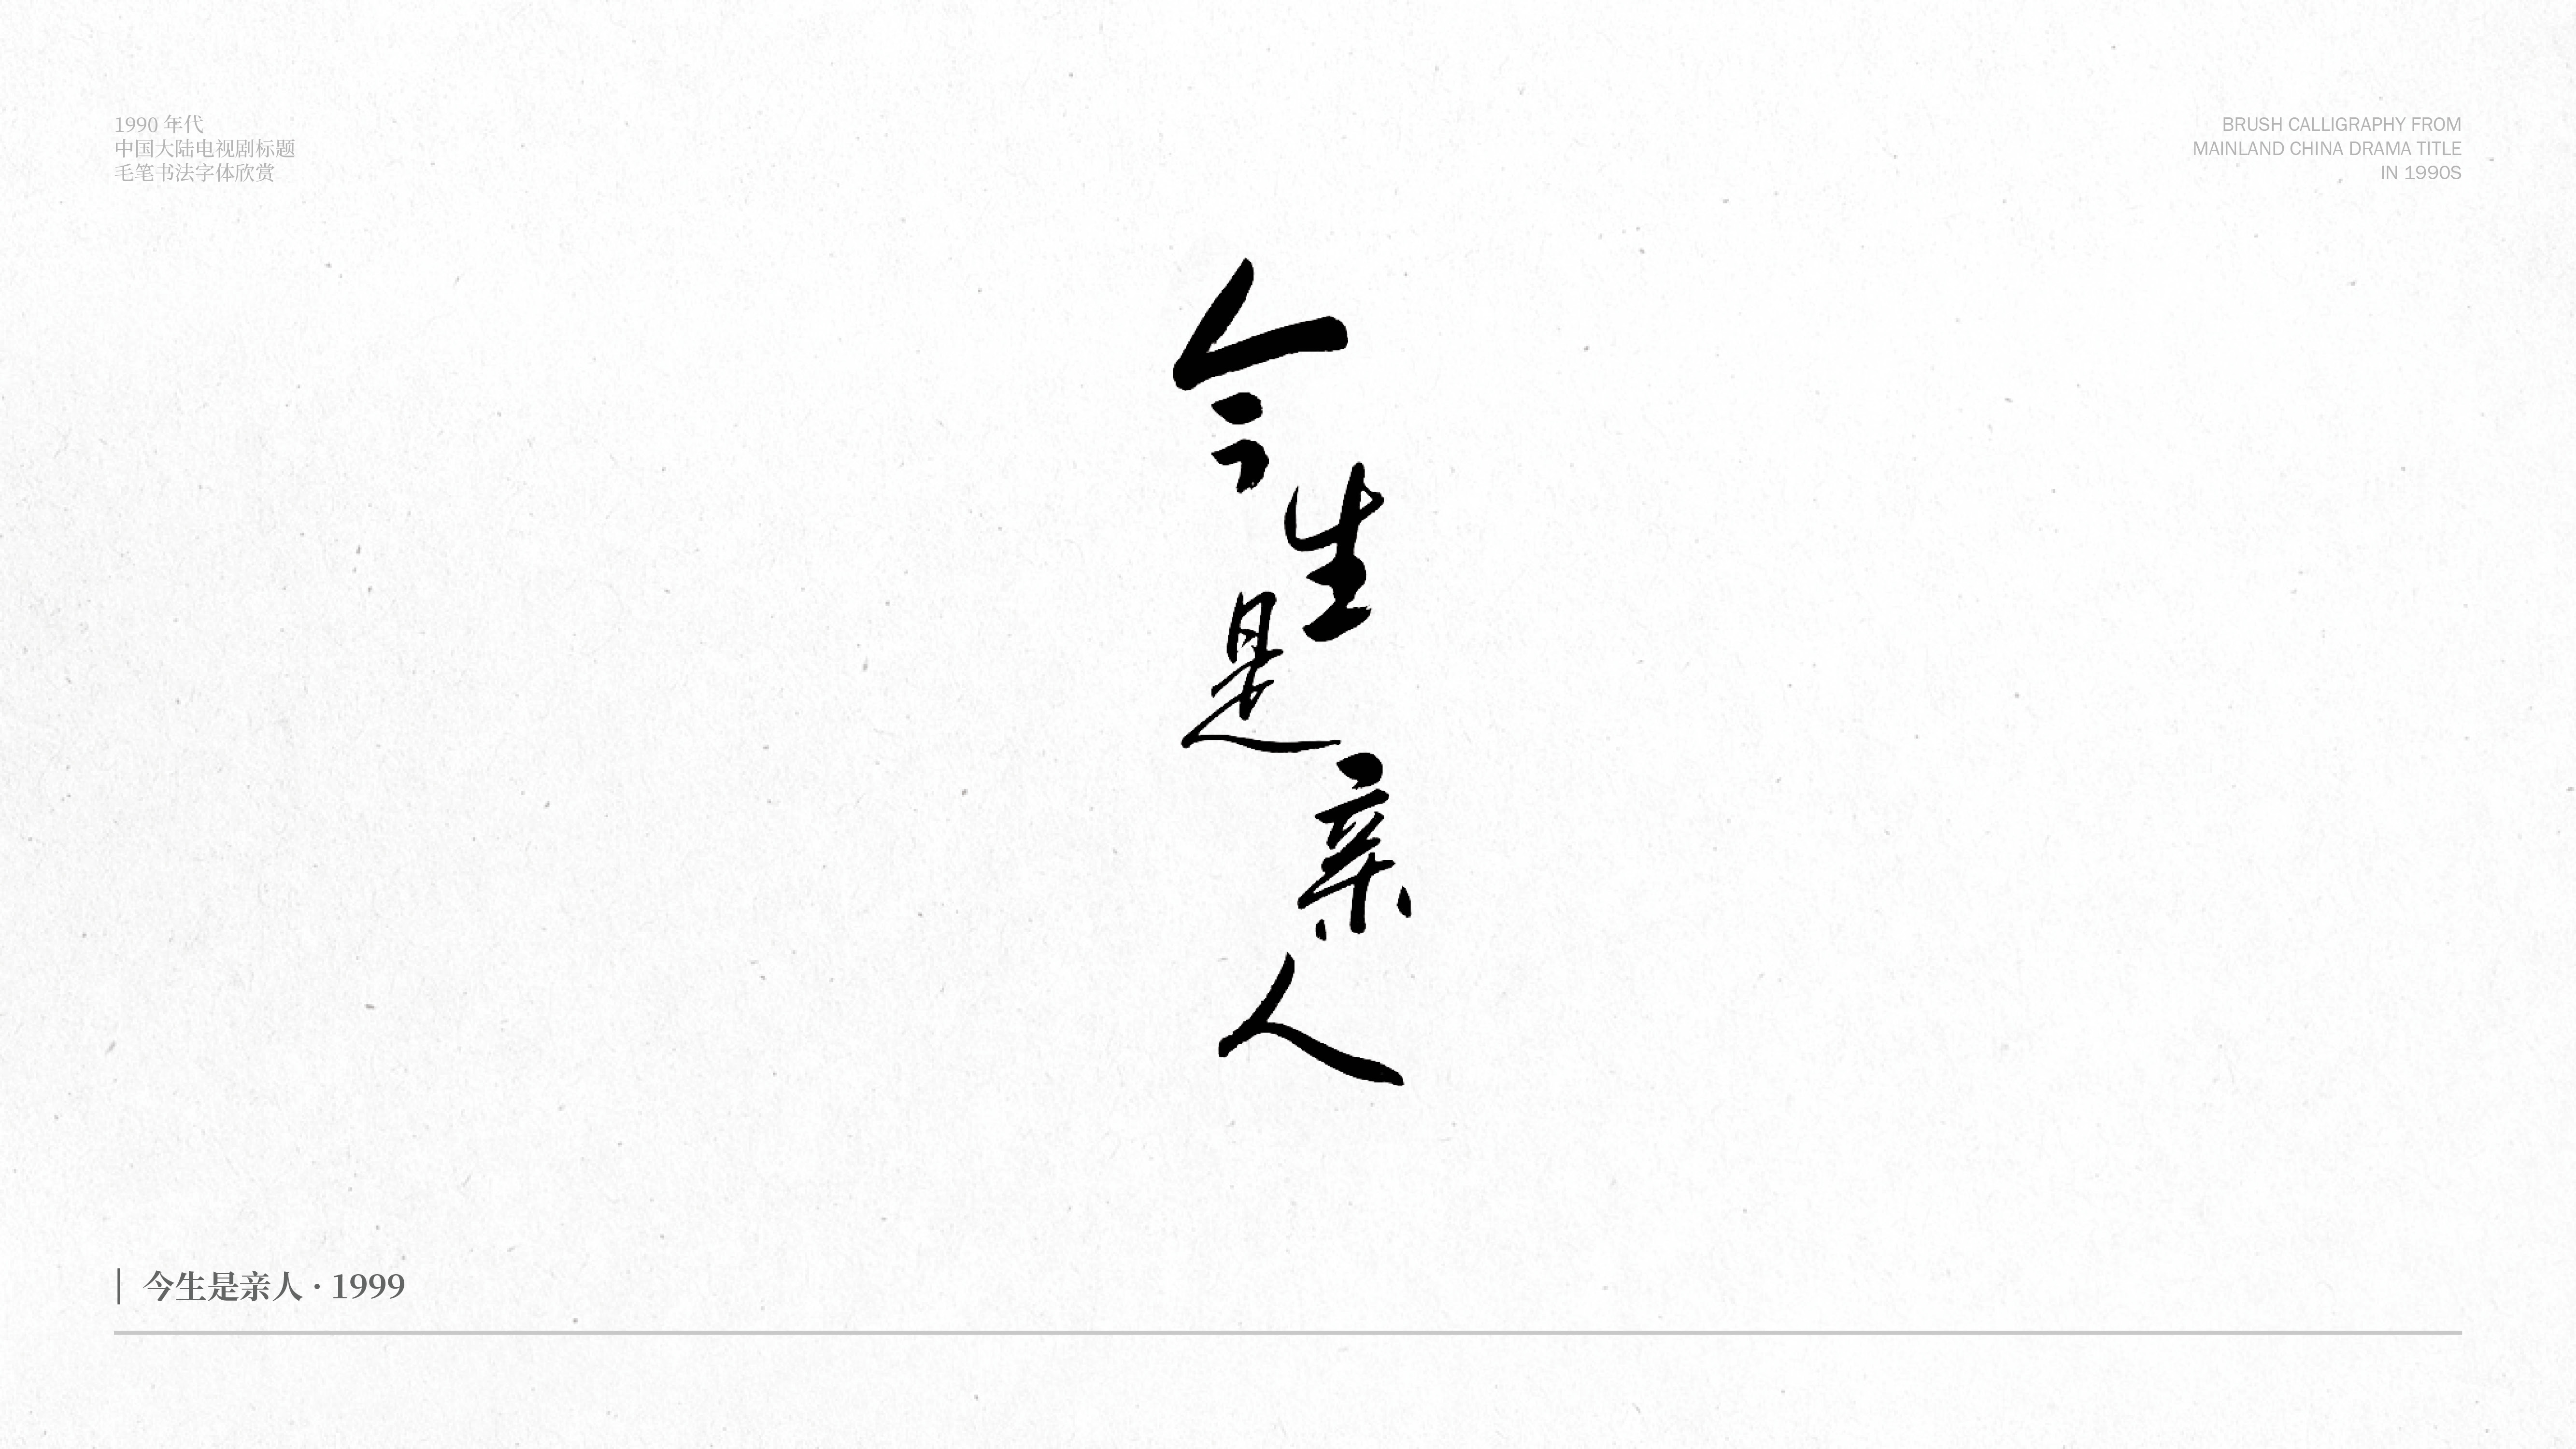 1990 年代
中国大陆电视剧标题
毛笔书法字体欣赏
BRUSH CALLIGRAPHY FROM
MAINLAND CHINA DRAMA TITLE
IN 1990S
今生是亲人
今生是亲人 · 1999